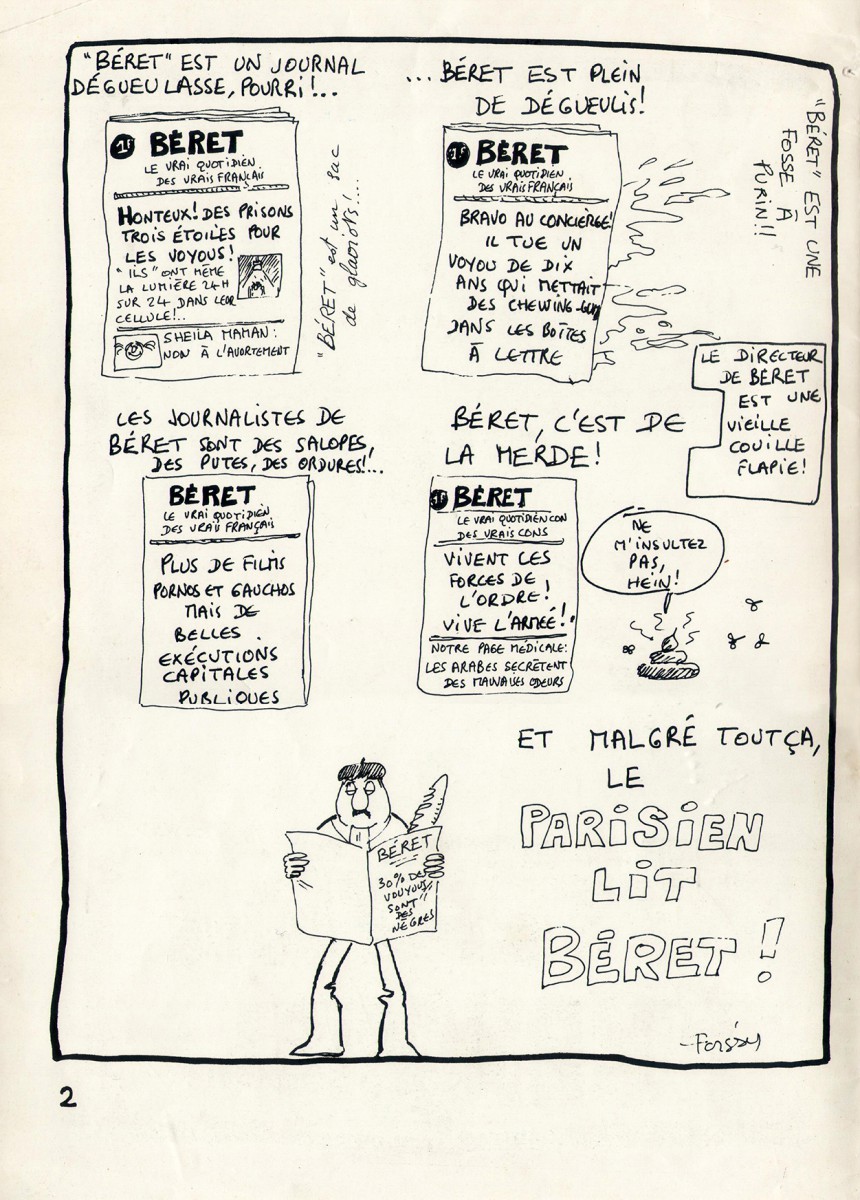 "BÉRET" EST UN JOURNAL
DÉGUEULASSE, POURRI!...
BÉRET
LE VRAI QUOTIDIEN
DES VRAIS FRANÇAIS
HONTEUX! DES PRISONS
TROIS ÉTOILES POUR
LES VOYOUS!
"ILS" ONT MÊME
LA LUMIÈRE 24H
SUR 24 DANS LEUR
CELLULE!..
SHEILA MAMAN:
NON À L'AVORTEMENT
"BÉRET" est un sac
de glaviots!...
...BÉRET EST PLEIN
DE DÉGUEULIS!
BÉRET
LE VRAI QUOTIDIEN
DES VRAIS FRANÇAIS
BRAVO AU CONCIERGE!
IL TUE UN
VOYOU DE DIX
ANS QUI METTAIT
DES CHEWING-GUM
DANS LES BOÎTES
À LETTRE
"BÉRET" EST UNE
FOSSE À
PURIN!!
LE DIRECTEUR
DE BÉRET
EST UNE
VIEILLE
COUILLE
FLAPIE!
LES JOURNALISTES DE
BÉRET SONT DES SALOPES,
DES PUTES, DES ORDURES!...
BÉRET
LE VRAI QUOTIDIEN
DES VRAIS FRANÇAIS
PLUS DE FILMS
PORNOS ET GAUCHOS
MAIS DE
BELLES
EXÉCUTIONS
CAPITALES
PUBLIQUES
BÉRET, C'EST DE
LA MERDE!
BÉRET
LE VRAI QUOTIDIEN CON
DES VRAIS CONS
VIVENT LES
FORCES DE
L'ORDRE!
VIVE L'ARMÉE!
NOTRE PAGE MÉDICALE:
LES ARABES SECRÈTENT
DES MAUVAISES ODEURS
NE
M'INSULTEZ
PAS,
HEIN!
ET MALGRÉ TOUT ÇA,
LE
PARISIEN
LIT
BÉRET!
BÉRET
30% DES
VOUYOUS
SONT
DES
NÈGRES
2